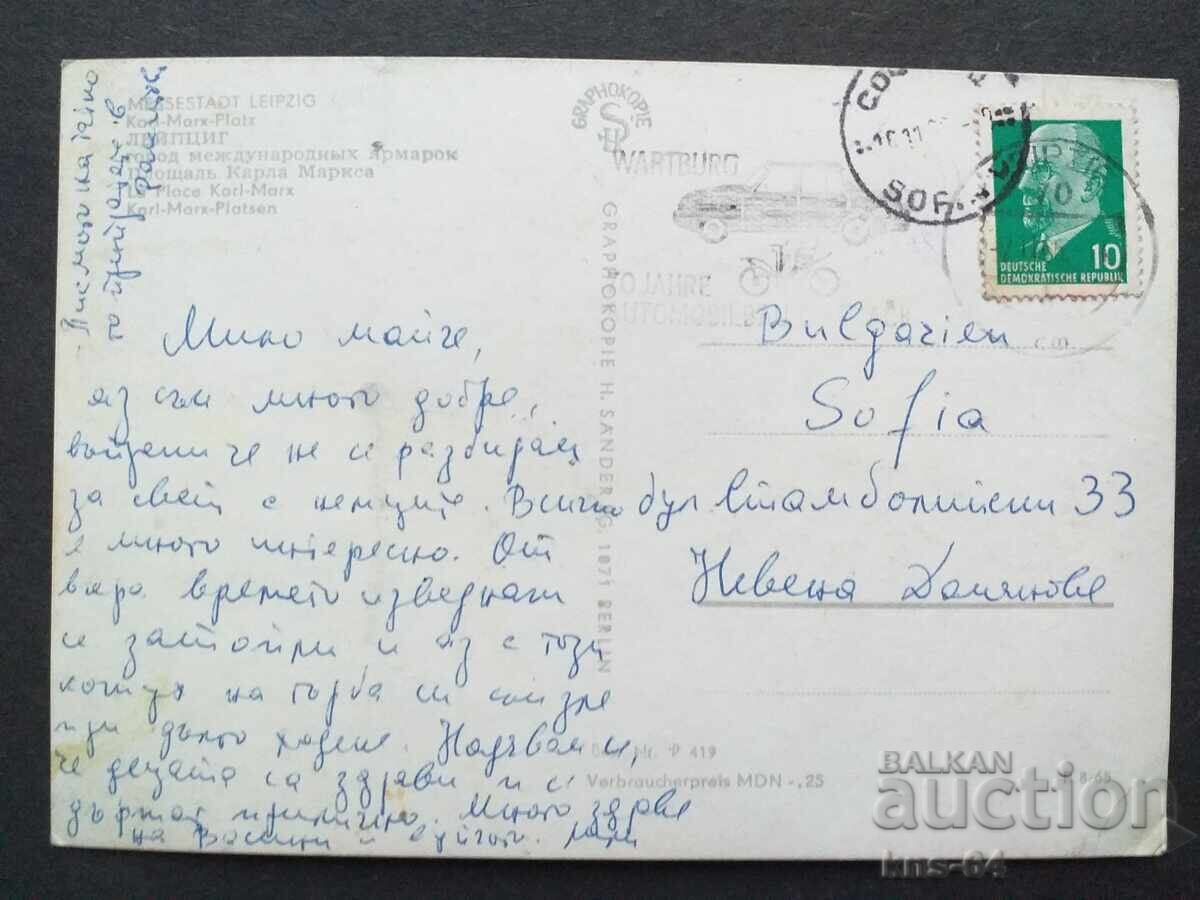 MESSESTADT LEIPZIG
Karl-Marx-Platz
ЛЕЙПЦИГ
город международных ярмарок
Площадь Карла Маркса
La Place Karl-Marx
Karl-Marx-Platsen
Писмото на
GRAPHOKOPIE
WARTBURG
70 JAHRE
AUTOMOBILBAU
SOF
LEIPZIG
10
DEUTSCHE
DEMOKRATISCHE REPUBLIK
Мило майче,
аз съм много добре,
въпреки че не се разбирам
за свет с немците. Всичко
е много интересно. От
вчера времето изведнаж
се затопли и аз с този
кожух на гърба си
дълго ходене. Надявам се,
че децата са здрави и се
държат прилично. Много здраве
на Васили и
GRAPHOKOPIE H. SANDER KG, 1071 BERLIN
Bulgarien
Sofia
бул Стамболийски 33
Невена
Nr. P 419
Verbraucherpreis MDN -,25
8 65
BALKAN
auction
kns-64